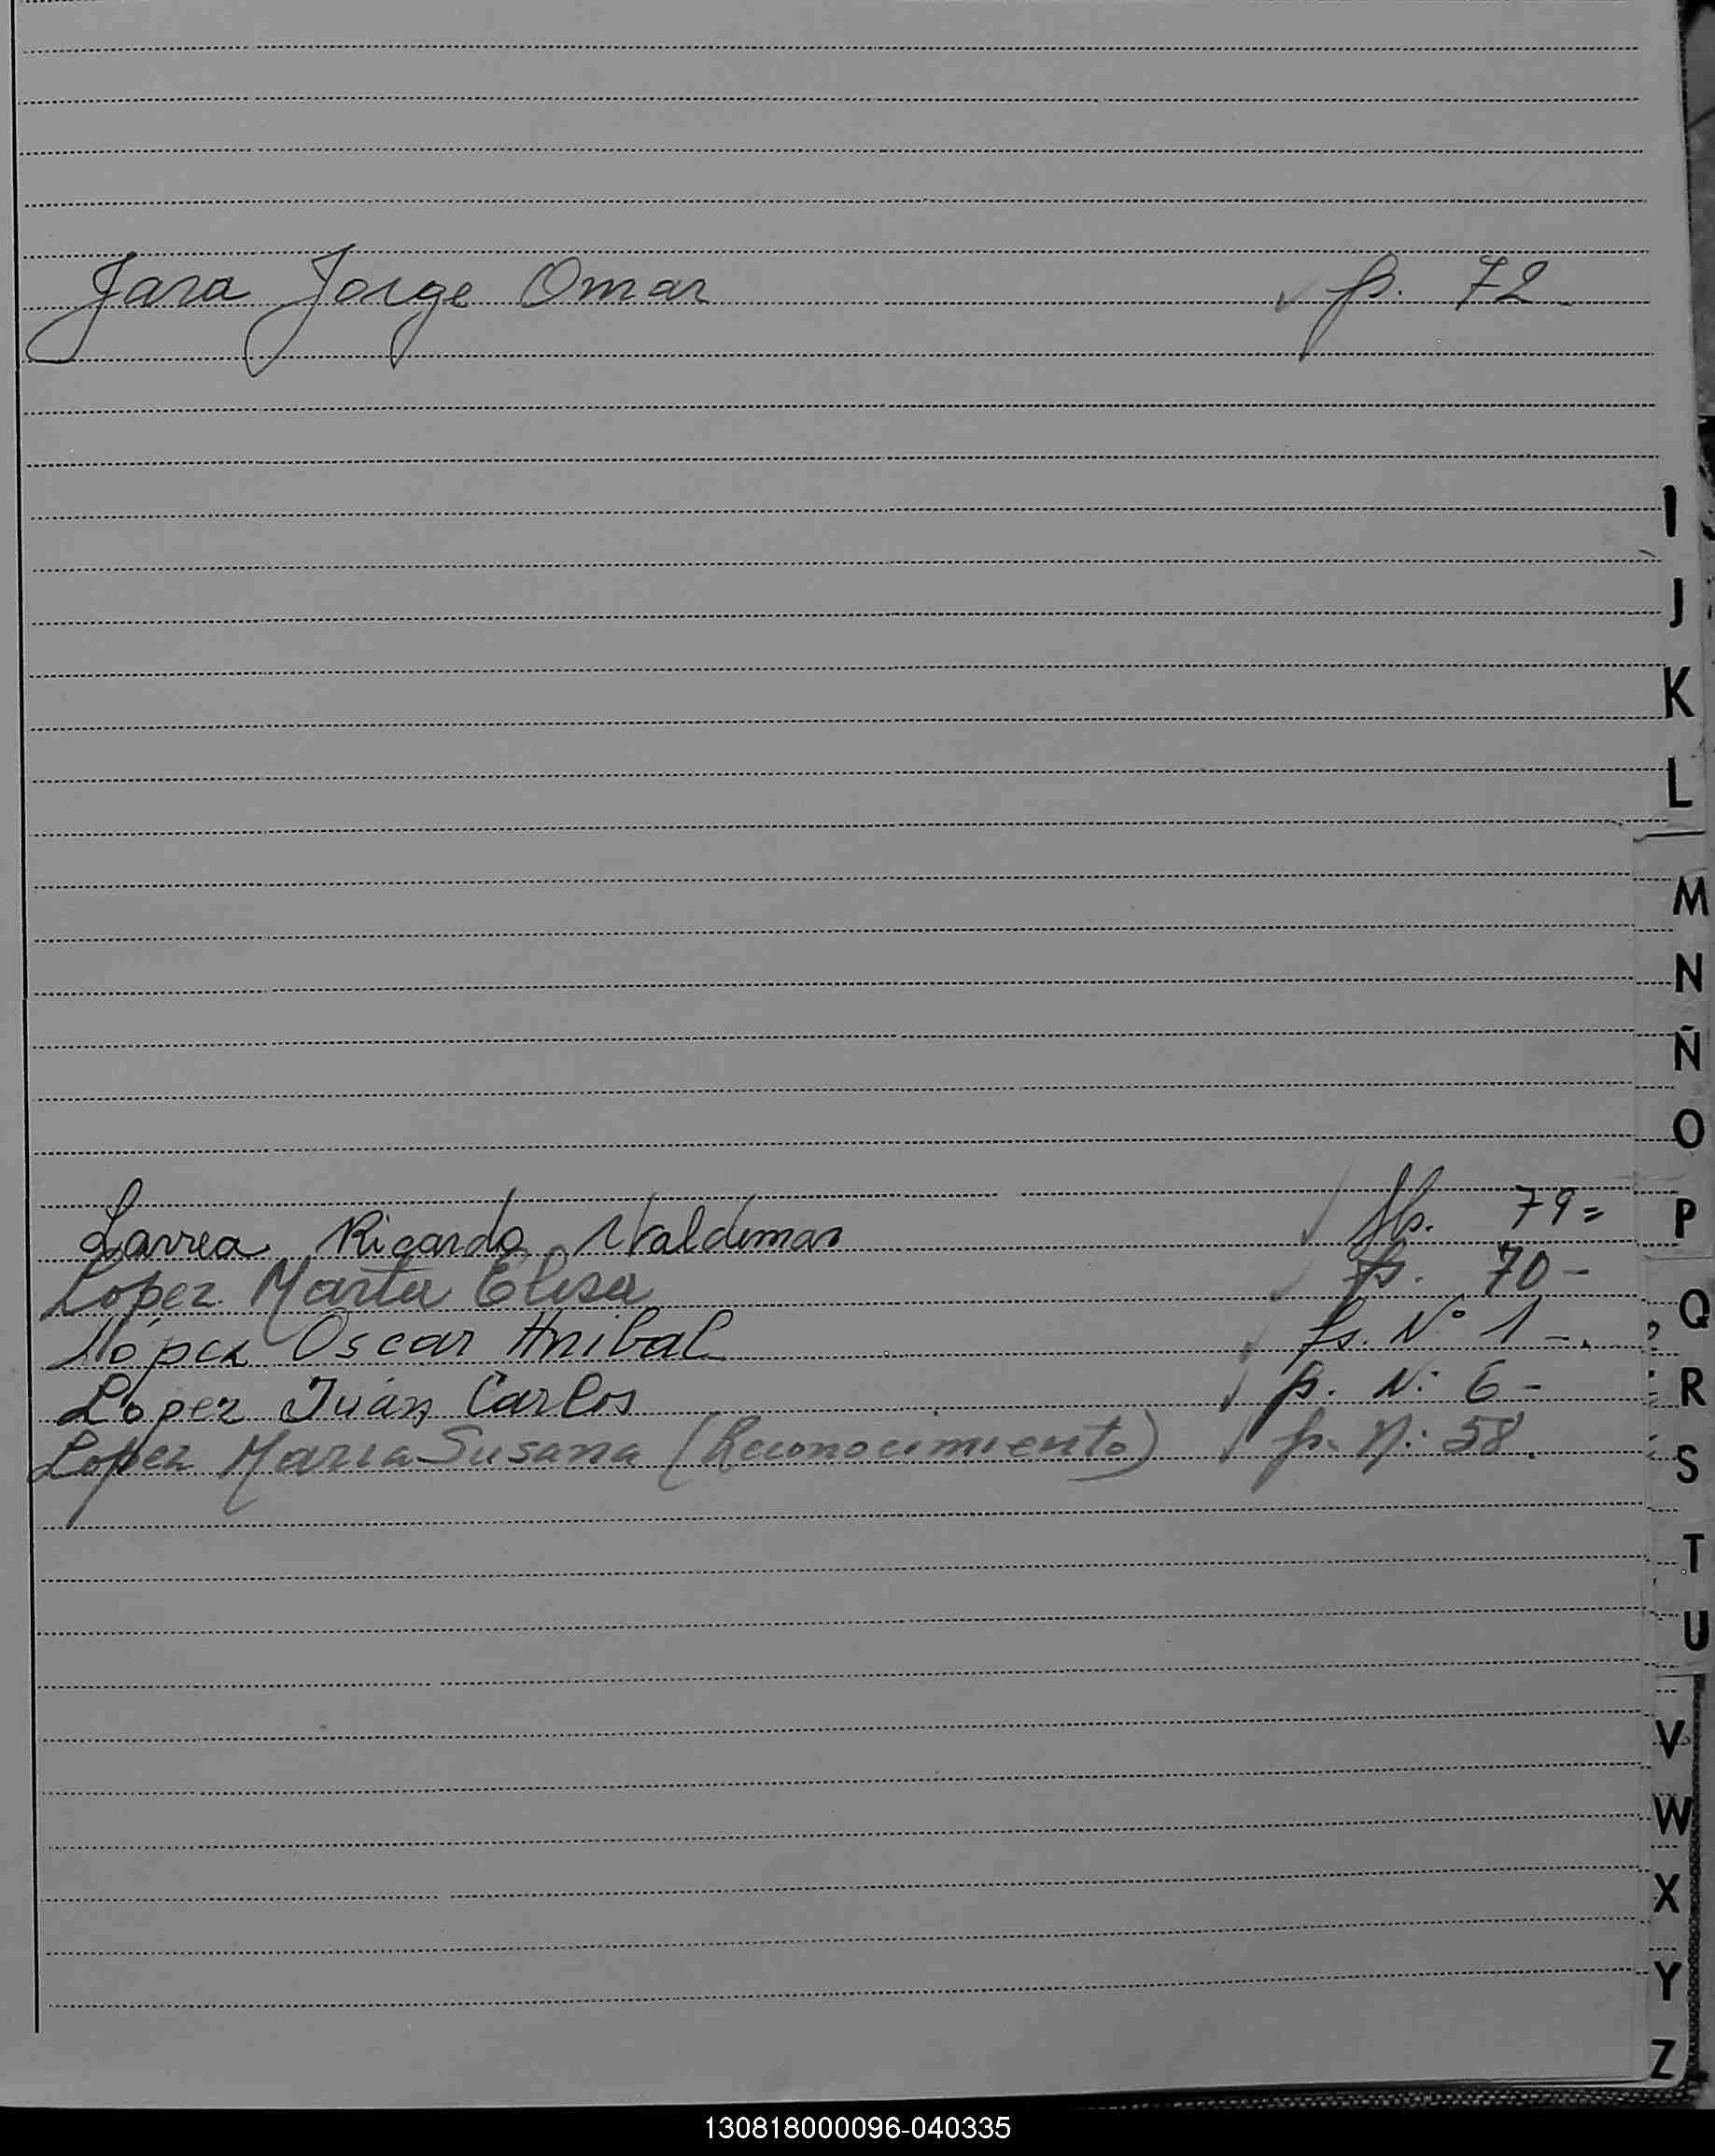 Jara Jorge Omar ✓ fs. 72-
I
J
K
L
M
N
Ñ
O
Larrea Ricardo Valdemar ✓ fs. 79=
P
Lopez Marta Elisa ✓ fs. 70-
Q
López Oscar Anibal ✓ fs. Nº 1-.
Lopez Juan Carlos ✓ fs. N: 6-
R
Lopez Maria Susana (Reconocimiento) ✓ fs. N: 58.
S
T
U
V
W
X
Y
Z
130818000096-040335